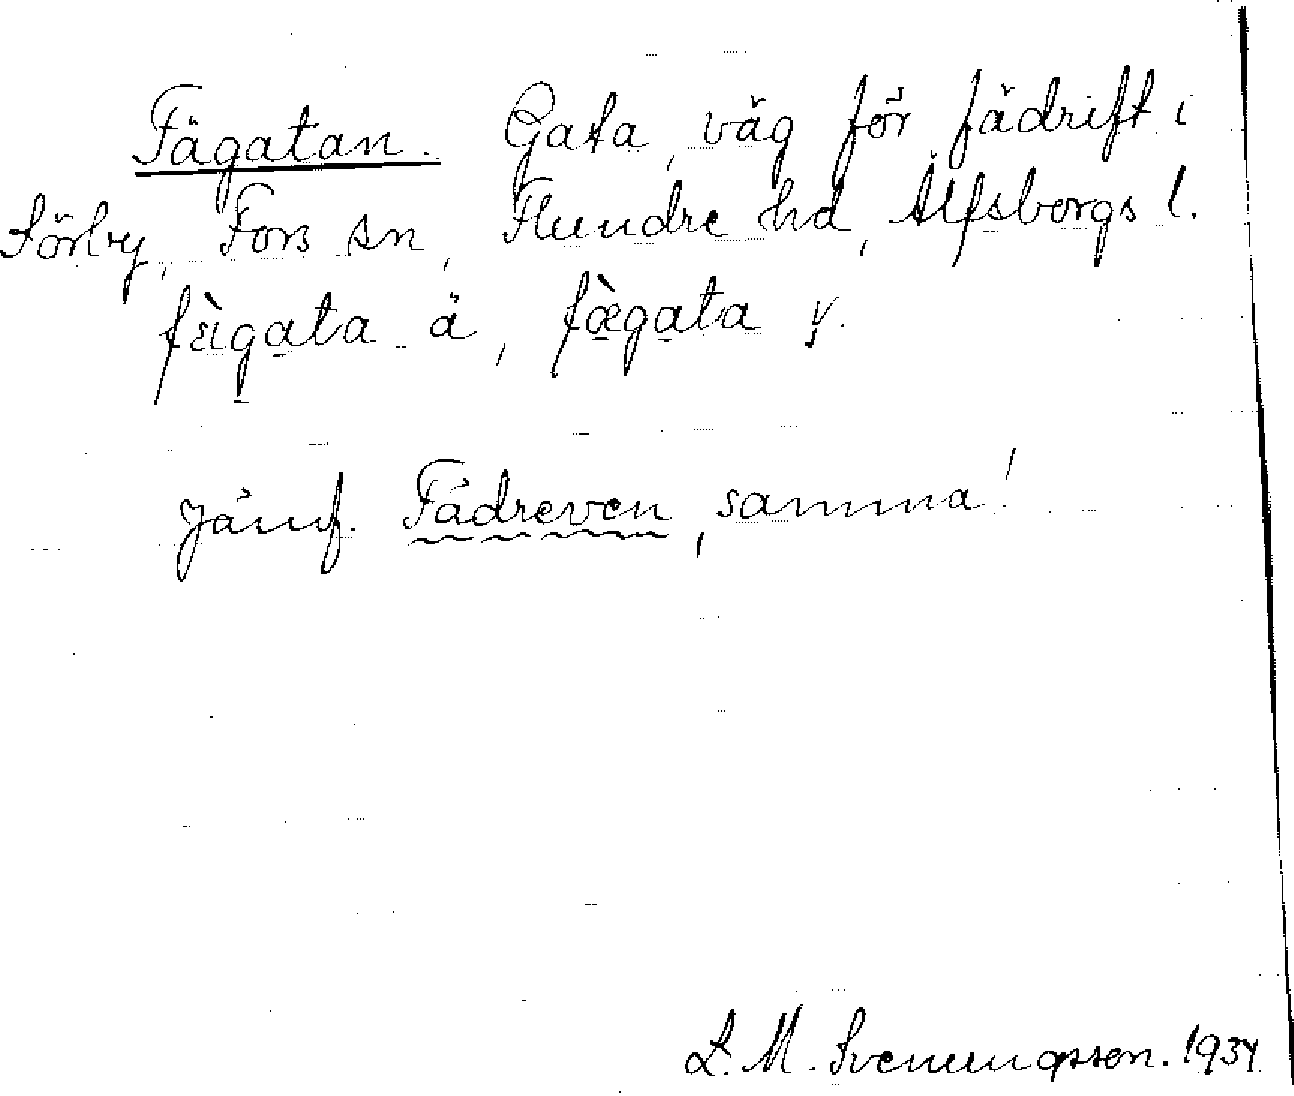 Fägatan. Gata, väg för fädrift i
Sörby, Fors sn, Flundre hd, Älfsborgs l.
fægata ä, fægata y.
Jämf. Fädreven, samma!
S. M. Svenungsson. 1934